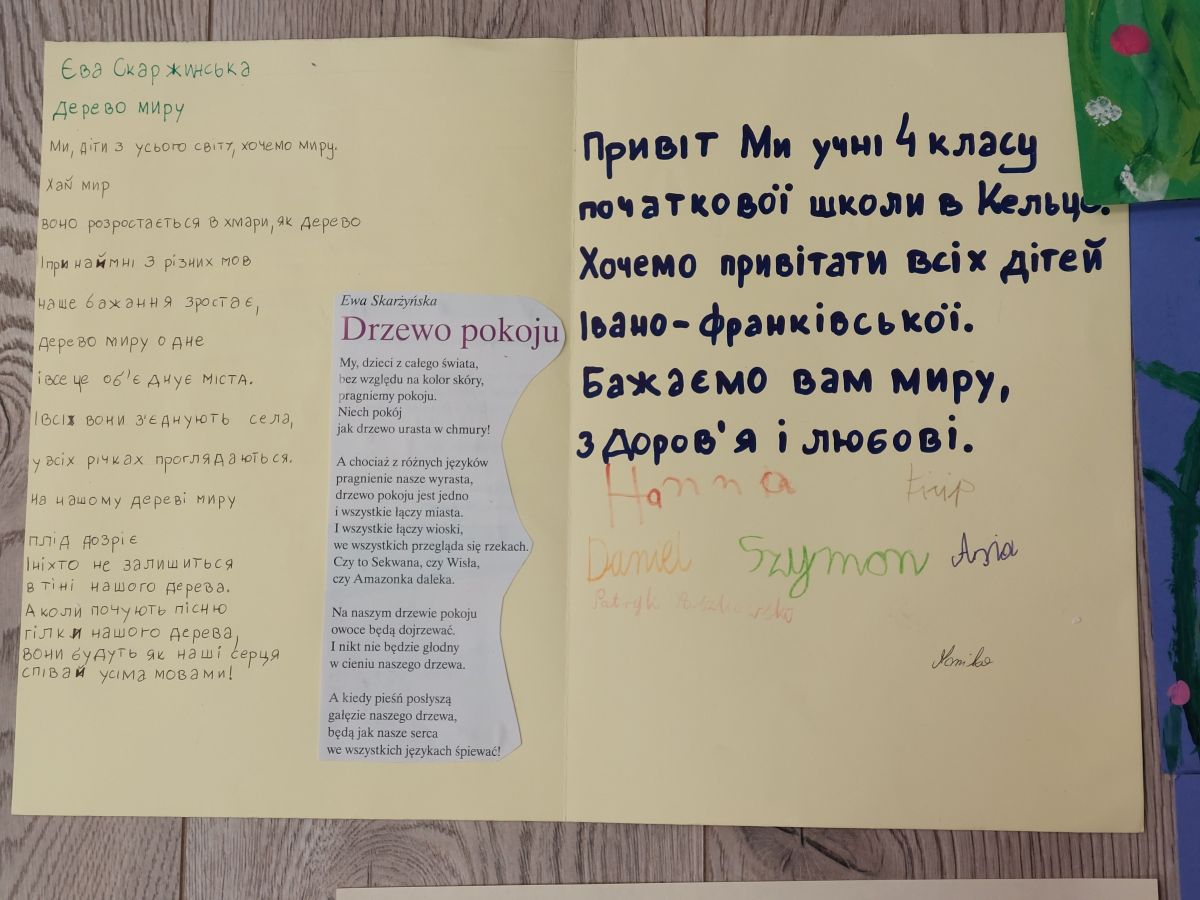 Єва Скаржинська
Дерево миру
Ми, діти з усього світу, хочемо миру.
Хай мир
воно розростається в хмари, як дерево
І принаймні з різних мов
наше бажання зростає,
дерево миру одне
і все це об'єднує міста.
І всіх вони з'єднують села,
у всіх річках проглядаються.
на нашому дереві миру
плід дозріє
І ніхто не залишиться
в тіні нашого дерева.
А коли почують пісню
гілки нашого дерева,
вони будуть як наші серця
співай усіма мовами!
Ewa Skarżyńska
Drzewo pokoju
My, dzieci z całego świata,
bez względu na kolor skóry,
pragniemy pokoju.
Niech pokój
jak drzewo urasta w chmury!
A chociaż z różnych języków
pragnienie nasze wyrasta,
drzewo pokoju jest jedno
i wszystkie łączy miasta.
I wszystkie łączy wioski,
we wszystkich przegląda się rzekach.
Czy to Sekwana, czy Wisła,
czy Amazonka daleka.
Na naszym drzewie pokoju
owoce będą dojrzewać.
I nikt nie będzie głodny
w cieniu naszego drzewa.
A kiedy pieśń posłyszą
gałęzie naszego drzewa,
będą jak nasze serca
we wszystkich językach śpiewać!
Привіт Ми учні 4 класу
початкової школи в Кельце.
Хочемо привітати всіх дітей
Івано-франківської.
Бажаємо вам миру,
здоров'я і любові.
Hanna
Daniel Szymon Asia
Patryk
Monika